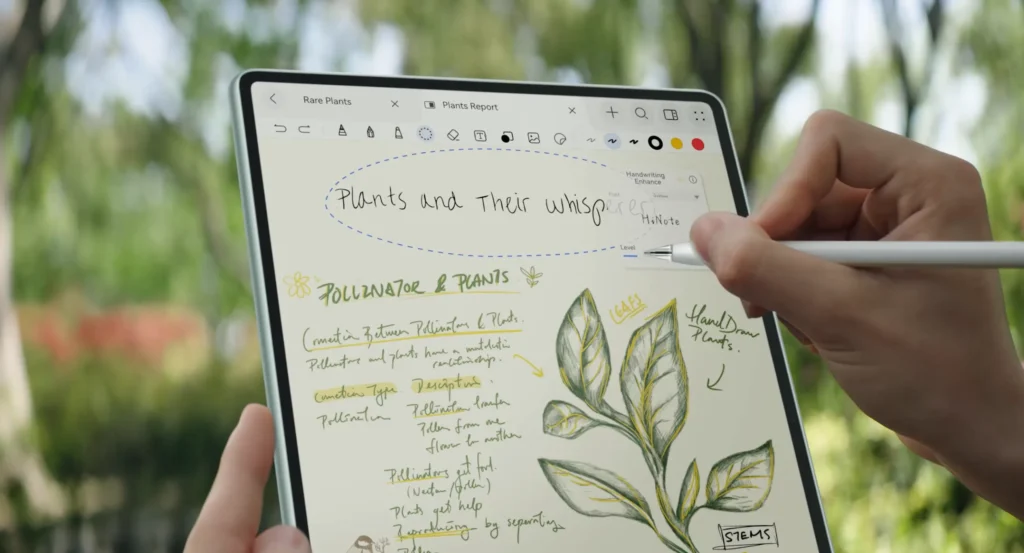 Rare Plants
Plants Report
Handwriting
Enhance
Plants and Their whisperer
Level
POLLINATOR & PLANTS
LEAFS
HandDraw
Plants.
Connection Between Pollinators & Plants.
Pollinators and plants have a mutualistic
relationship.
Connection Type Description.
Pollination Pollination transfer
Pollen from one
flower to another
Pollinators get food.
(Nectar/pollen)
Plants get help
Reproducing by separating
STEMS